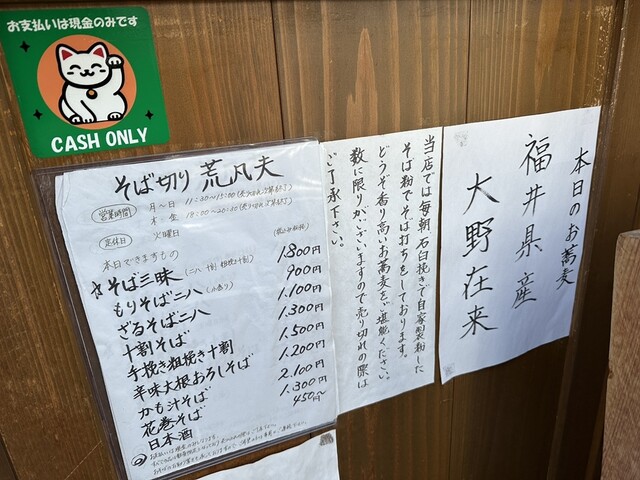 お支払いは現金のみです
CASH ONLY
そば切り 荒凡夫
営業時間
月〜日 11:30〜15:00
木 金 18:00〜20:30
定休日 火曜日
本日できますもの
そば三昧 1.800円
もりそば二八 900円
ざるそば二八 1.100円
十割そば 1.300円
手挽き粗挽き十割 1.500円
辛味大根おろしそば 1.200円
かも汁そば 2.100円
花巻そば 1.300円
日本酒 450円〜
当店では毎朝石臼挽きで自家製粉した
そば粉でそば打ちをしております。
どうぞ香り高いお蕎麦をご堪能ください。
数に限りがございますので売り切れの際は
ご了承下さい。
本日のお蕎麦
福井県産
大野在来